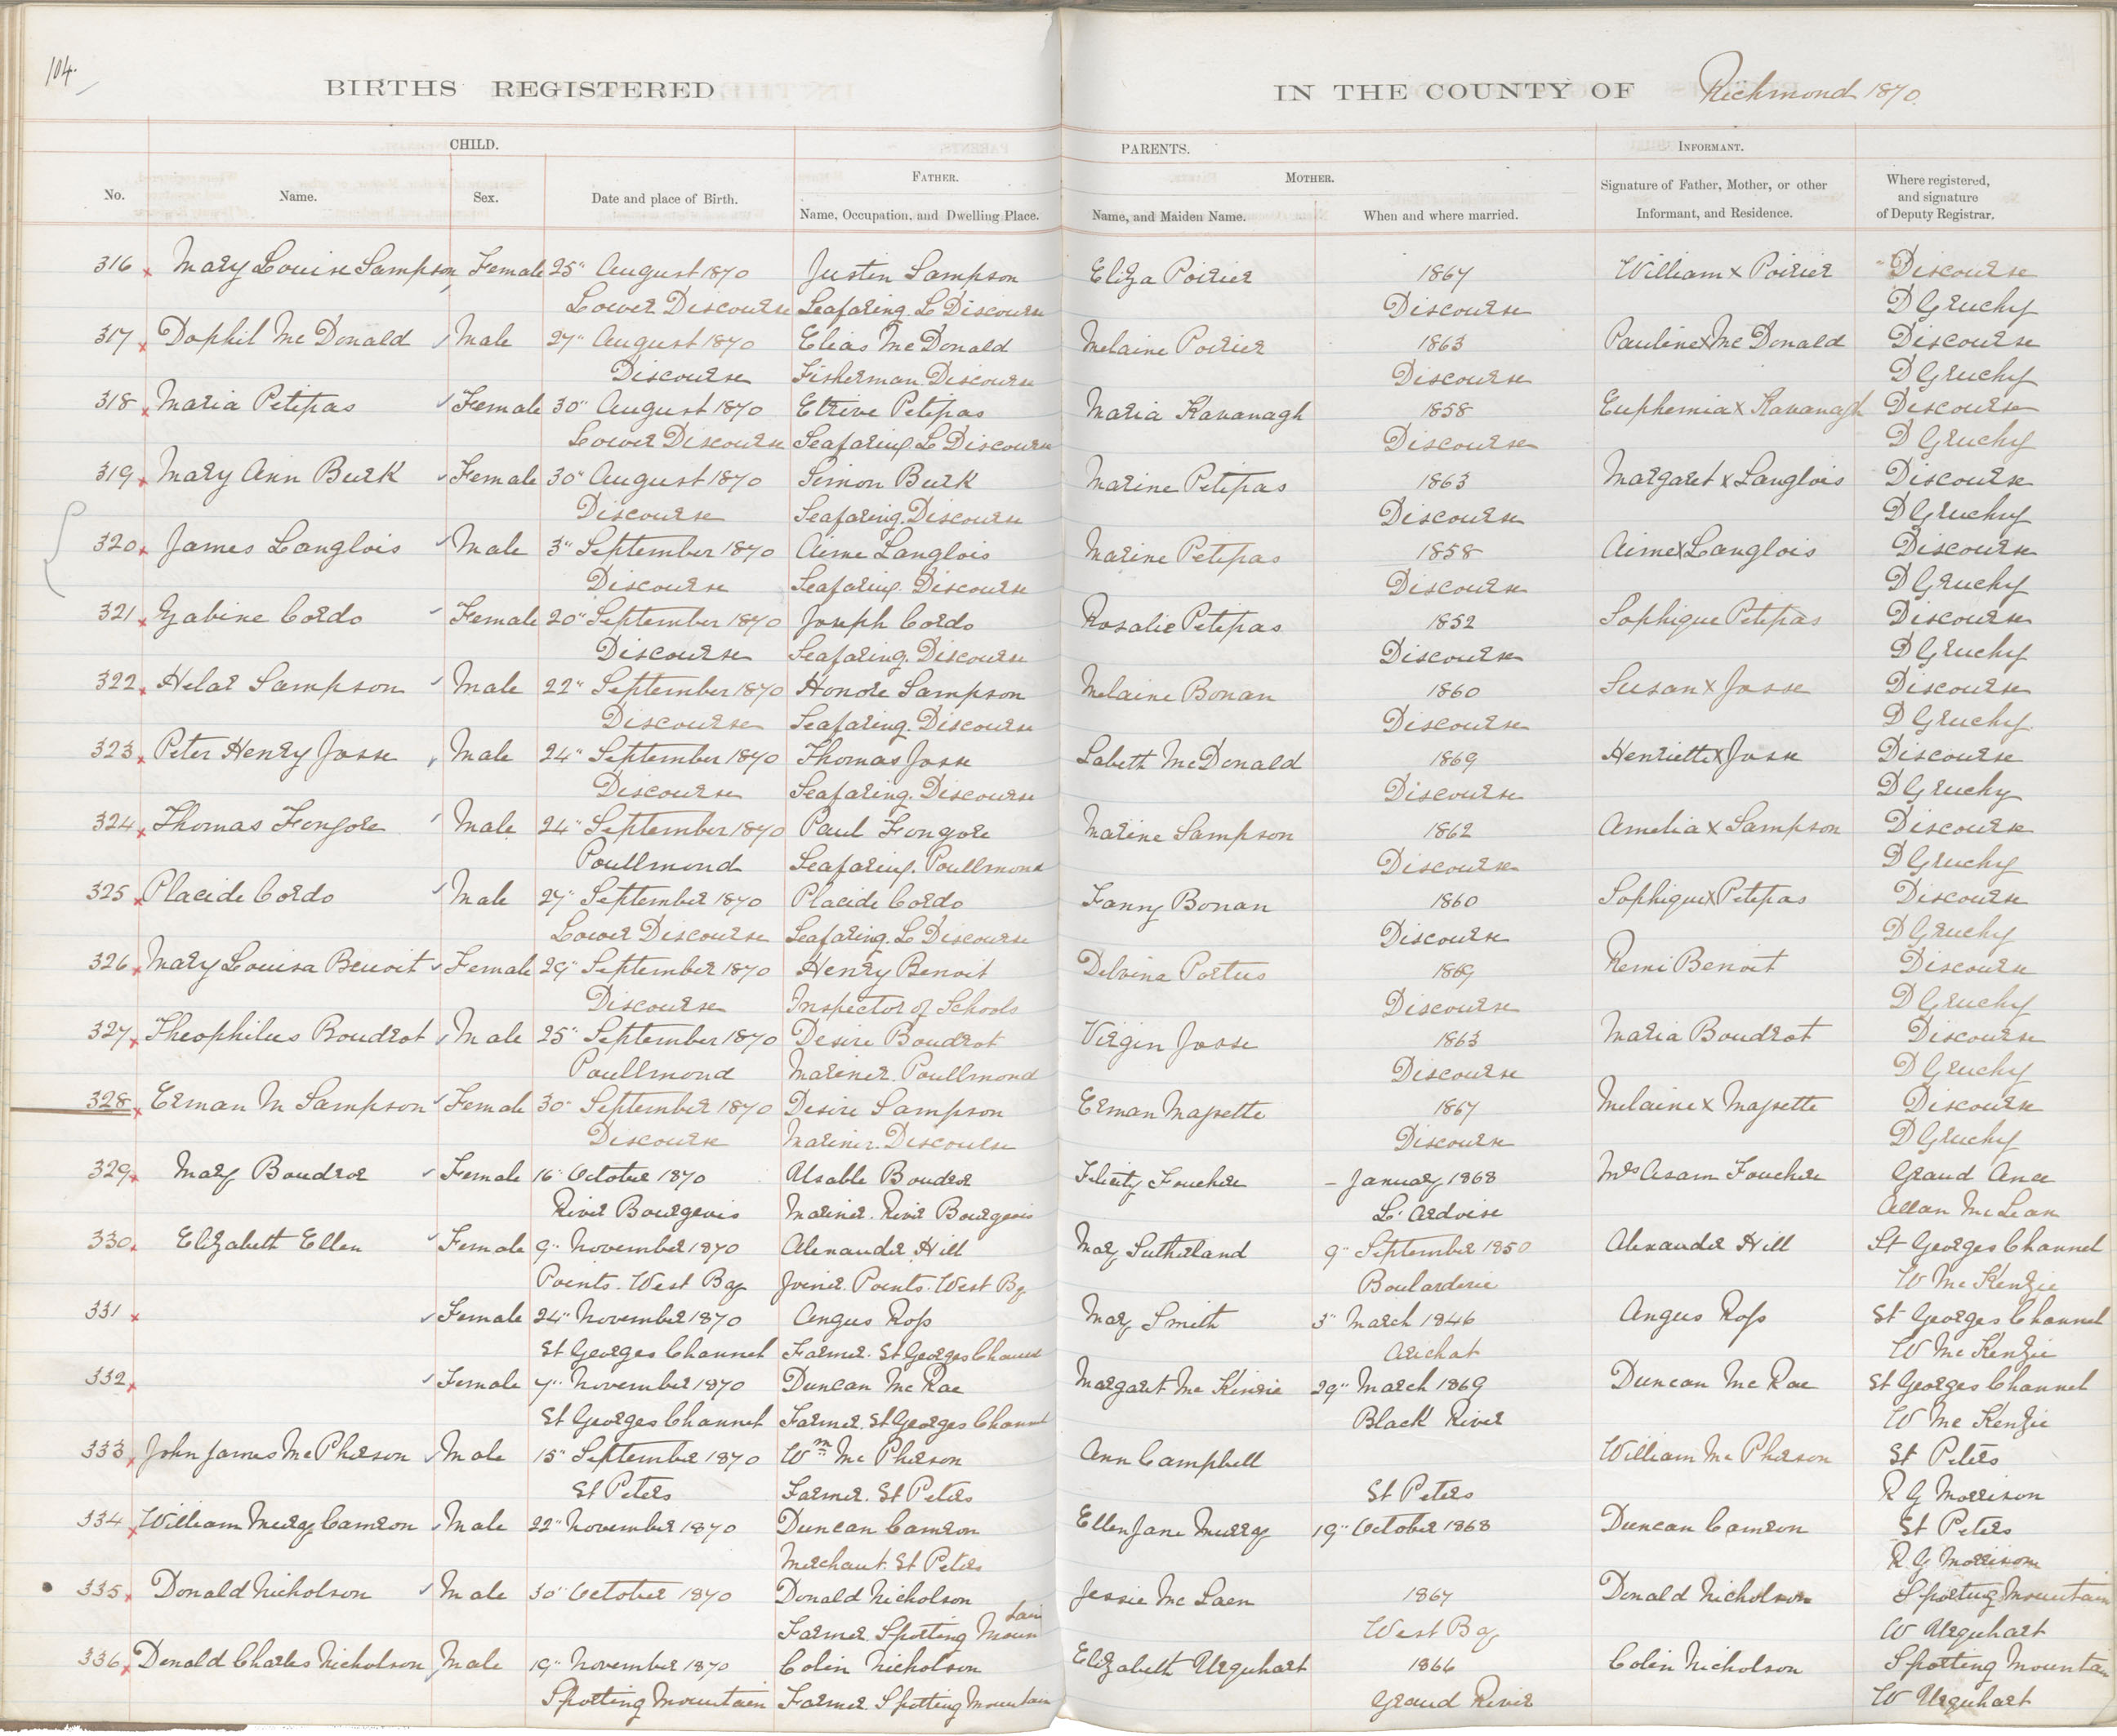 104.
BIRTHS REGISTERED IN THE COUNTY OF Richmond 1870.
CHILD. PARENTS. INFORMANT.
No. Name. Sex. Date and place of Birth. FATHER. Name, Occupation, and Dwelling Place. MOTHER. Name, and Maiden Name. When and where married. Signature of Father, Mother, or other Informant, and Residence. Where registered, and signature of Deputy Registrar.
316 Mary Louise Sampson Female 25" August 1870 Justin Sampson Eliza Poirier 1867 William x Poirier Discourse
Lower Discourse Seafaring L Discourse Discourse D Gruchy
317 Dophil McDonald Male 27" August 1870 Elias McDonald Melaine Poirier 1863 Pauline x McDonald Discourse
Discourse Fisherman Discourse Discourse D Gruchy
318 Maria Petipas Female 30" August 1870 Etrive Petipas Maria Kavanagh 1858 Euphemia x Kavanagh Discourse
Lower Discourse Seafaring L Discourse Discourse D Gruchy
319 Mary Ann Burk Female 30" August 1870 Simon Burk Marine Petipas 1863 Margaret x Langlois Discourse
Discourse Seafaring. Discourse Discourse D Gruchy
320 James Langlois Male 3" September 1870 Aime Langlois Marine Petipas 1858 Aime x Langlois Discourse
Discourse Seafaring. Discourse Discourse D Gruchy
321 Gabine Cordo Female 20" September 1870 Joseph Cordo Rosalie Petipas 1852 Sophique Petipas Discourse
Discourse Seafaring. Discourse Discourse D Gruchy
322 Helar Sampson Male 22" September 1870 Honore Sampson Melaine Bonan 1860 Susan x Josse Discourse
Discourse Seafaring. Discourse Discourse D Gruchy
323 Peter Henry Josse Male 24" September 1870 Thomas Josse Labeth McDonald 1869 Henriette x Josse Discourse
Discourse Seafaring. Discourse Discourse D Gruchy
324 Thomas Fongore Male 24" September 1870 Paul Fongore Marine Sampson 1862 Amelia x Sampson Discourse
Poullmond Seafaring. Poullmond Discourse D Gruchy
325 Placide Cordo Male 27" September 1870 Placide Cordo Fanny Bonan 1860 Sophique x Petipas Discourse
Lower Discourse Seafaring. L Discourse Discourse D Gruchy
326 Mary Louisa Benoit Female 29" September 1870 Henry Benoit Delvina Portus 1869 Remi Benoit Discourse
Discourse Inspector of Schools Discourse D Gruchy
327 Theophilus Boudrot Male 25" September 1870 Desire Boudrot Virgin Josse 1863 Maria Boudrot Discourse
Poullmond Mariner. Poullmond Discourse D Gruchy
328 Erman M Sampson Female 30" September 1870 Desire Sampson Erman Massette 1867 Melaine x Massette Discourse
Discourse Mariner. Discourse Discourse D Gruchy
329 Mary Boudror Female 16" October 1870 Usable Boudror Felicity Foucher – January 1868 Mrs Asam Foucher Grand Ance
River Bourgeois Mariner. River Bourgeois L'Ardoise Allan McLean
330 Elizabeth Ellen Female 9" November 1870 Alexander Hill Mary Sutherland 9" September 1850 Alexander Hill St Georges Channel
Points. West Bay Joiner. Points. West By Boularderie W McKenzie
331 Female 24" November 1870 Angus Ross Mary Smith 3" March 1846 Angus Ross St Georges Channel
St Georges Channel Farmer. St Georges Channel Arichat W McKenzie
332 Female 7" November 1870 Duncan McRae Margaret McKinzie 29" March 1869 Duncan McRae St Georges Channel
St Georges Channel Farmer. St Georges Channel Black River W McKenzie
333 John James McPherson Male 15" September 1870 Wm McPherson Ann Campbell William McPherson St Peters
St Peters Farmer. St Peters St Peters R G Morrison
334 William Murry Camron Male 22" November 1870 Duncan Camron Ellen Jane Murry 19" October 1868 Duncan Camron St Peters
Merchant. St Peters R G Morrison
335 Donald Nicholson Male 30" October 1870 Donald Nicholson Jessie McLaen 1867 Donald Nicholson Sporting Mountain
Farmer. Sporting Mountain West Bay W Urquhart
336 Donald Charles Nicholson Male 19" November 1870 Colin Nicholson Elizabeth Urquhart 1866 Colin Nicholson Sporting Mountain
Sporting Mountain Farmer. Sporting Mountain Grand River W Urquhart